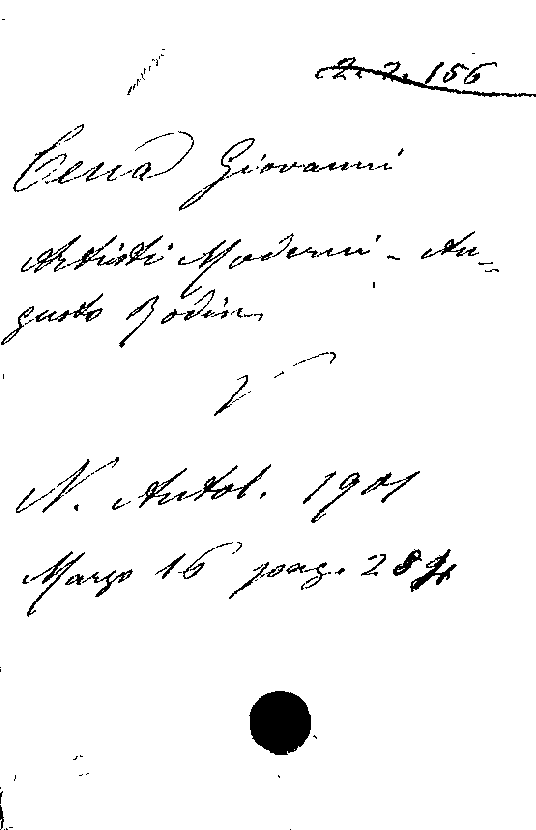 2. 2. 156
Cena Giovanni
Artisti Moderni - Au=
gusto Rodin
V
N. Antol. 1901
Marzo 16 pag. 284